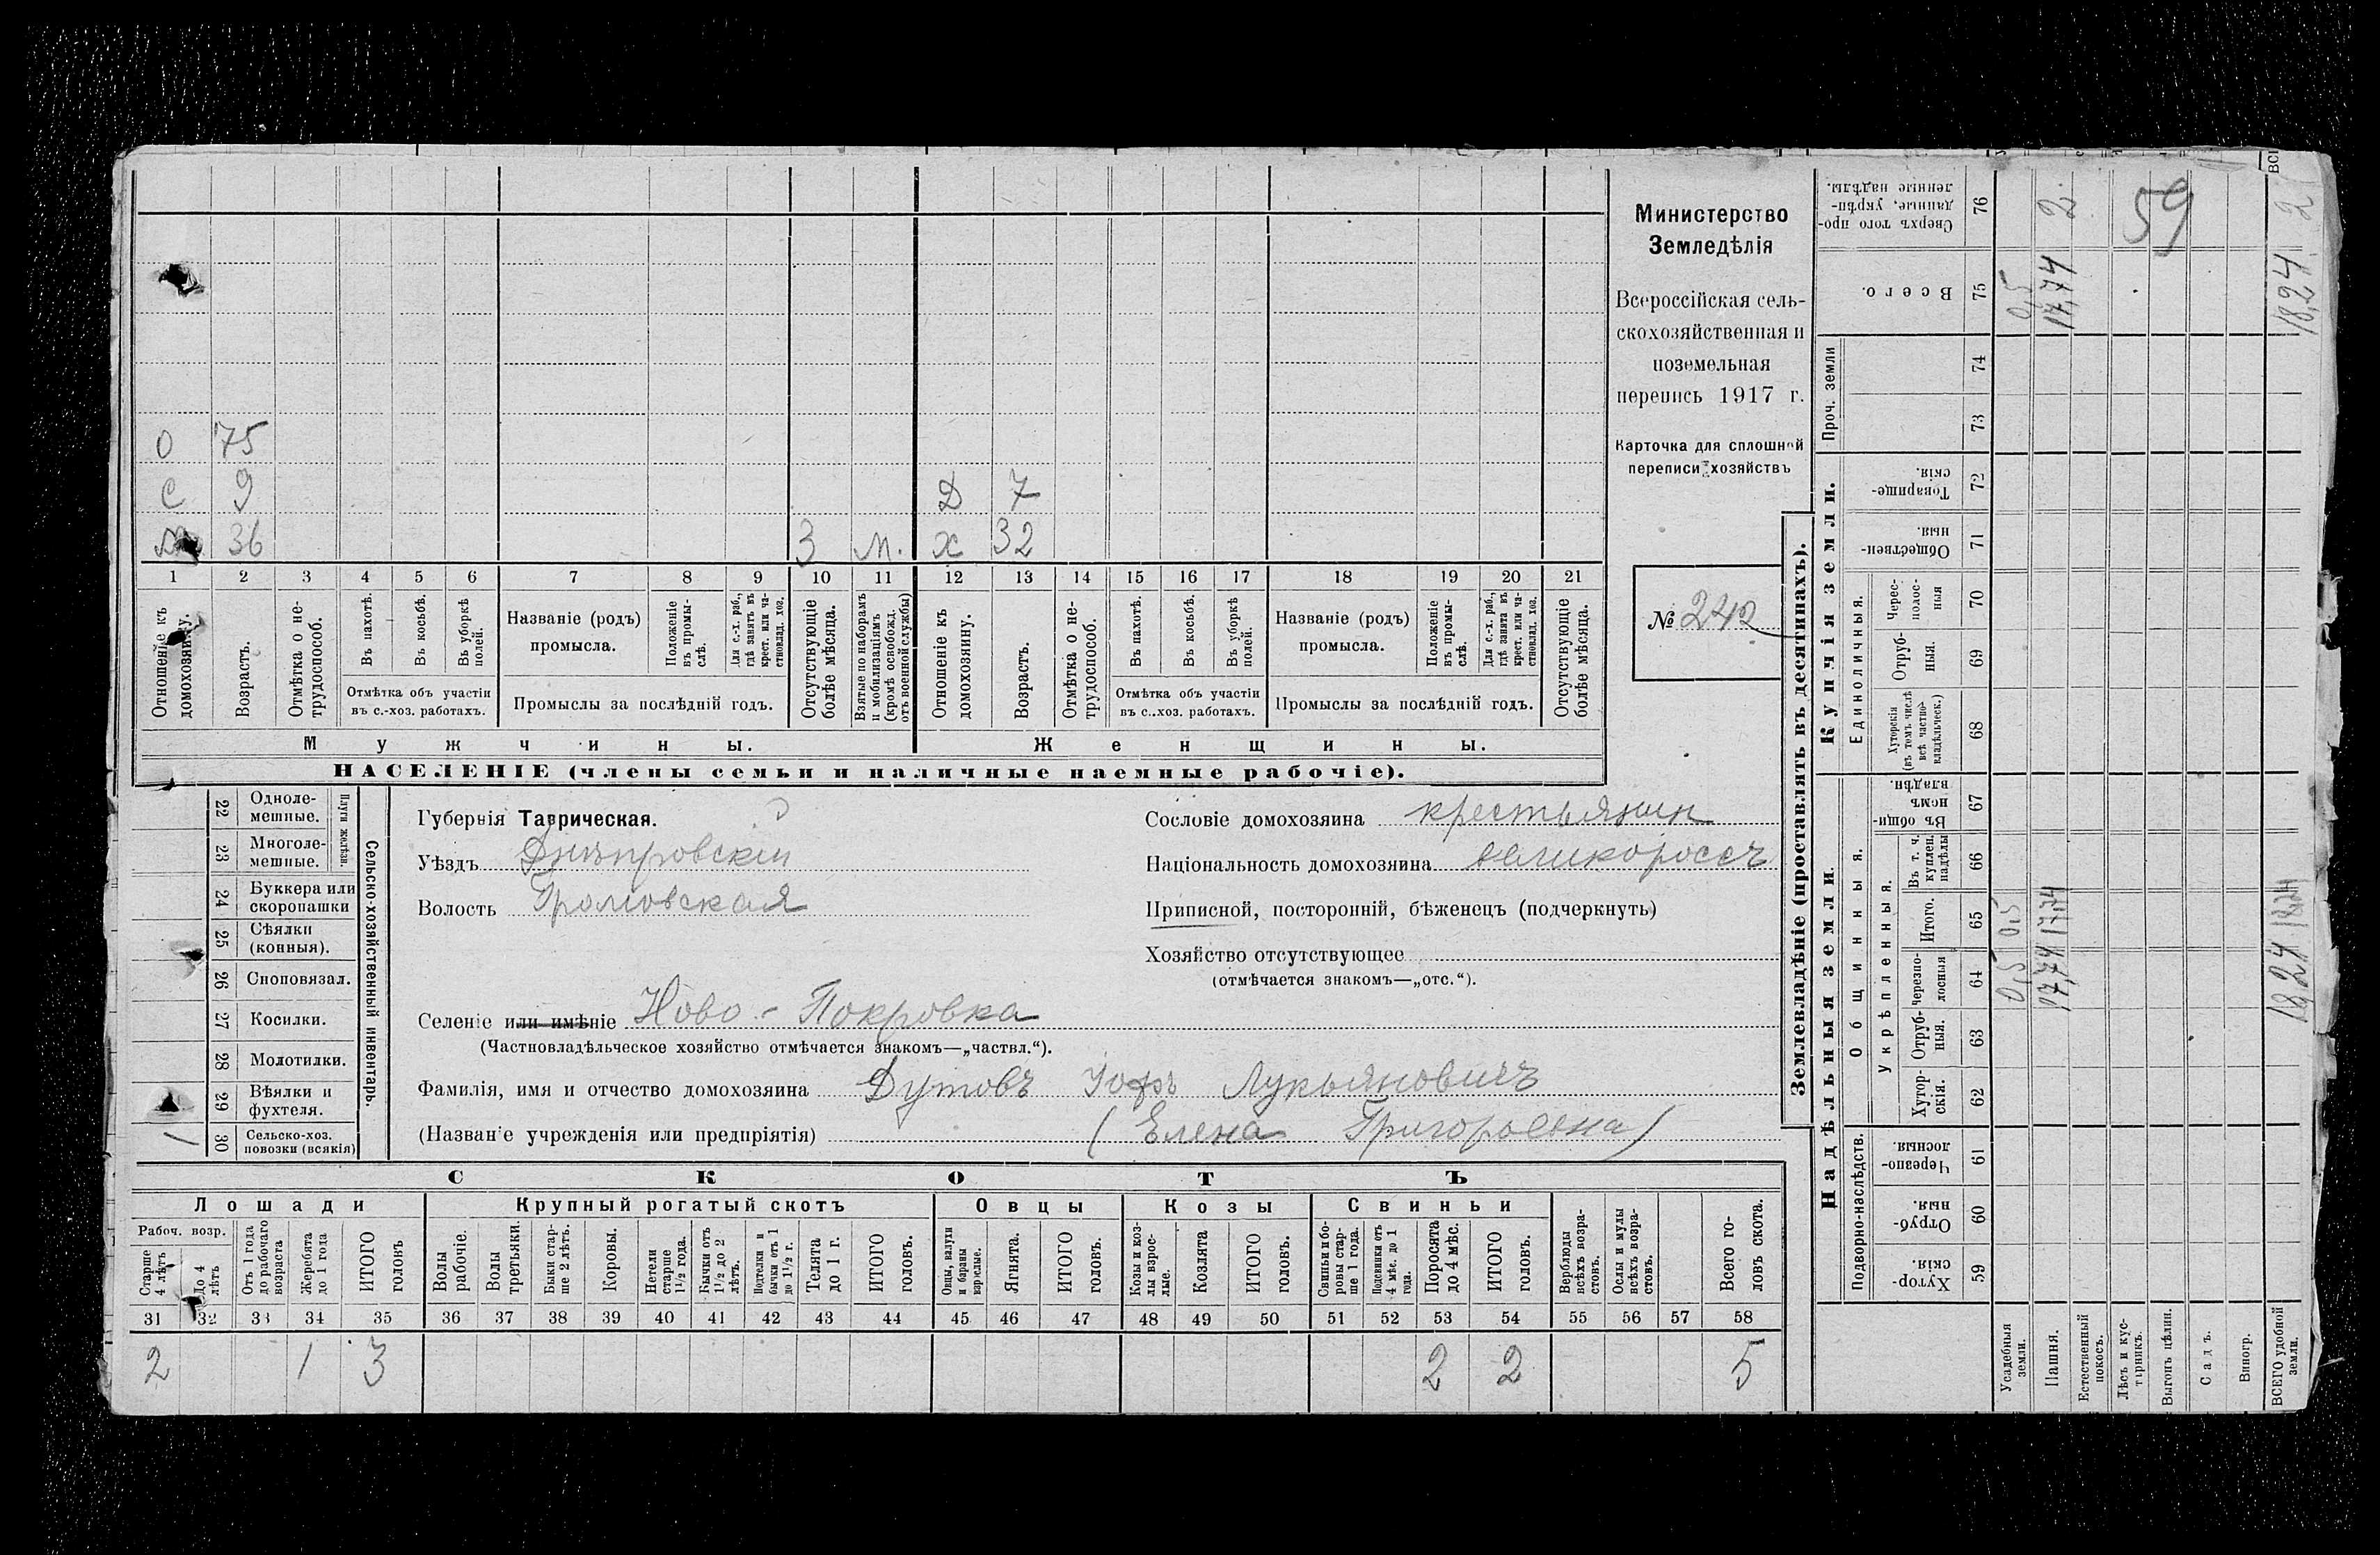 О 75
С 9 Д 7
36 3 м. х 32
1 2 3 4 5 6 7 8 9 10 11 12 13 14 15 16 17 18 19 20 21
Отношеніе къ домохозяину.
Возрастъ.
Отмѣтка о не-
трудоспособ.
Въ пахотѣ.
Въ косьбѣ.
Въ уборкѣ
полей.
Отмѣтка объ участіи
въ с.-хоз. работахъ.
Названіе (родъ)
промысла.
Положеніе
въ промы-
слѣ.
Для с.-х. раб.,
гдѣ занятъ въ
крест. или ча-
стновлад. хоз.
Промыслы за послѣдній годъ.
Отсутствующіе
болѣе мѣсяца.
Взятые по наборамъ
и мобилизаціямъ
(кромѣ освобожд.
отъ военной службы)
Отношеніе къ
домохозяину.
Возрастъ.
Отмѣтка о не-
трудоспособ.
Въ пахотѣ.
Въ косьбѣ.
Въ уборкѣ
полей.
Отмѣтка объ участіи
въ с.-хоз. работахъ.
Названіе (родъ)
промысла.
Положеніе
въ промы-
слѣ.
Для с.-х. раб.,
гдѣ занята въ
крест. или ча-
стновлад. хоз.
Промыслы за послѣдній годъ.
Отсутствующіе
болѣе мѣсяца.
Мужчины.
Женщины.
НАСЕЛЕНІЕ (члены семьи и наличные наемные рабочіе).
Министерство
Земледѣлія
Всероссійская сель-
скохозяйственная и
поземельная
перепись 1917 г.
Карточка для сплошной
переписи хозяйствъ
№ 242
22 Одноле-
мешные.
23 Многоле-
мешные.
Плуги желѣзн.
24 Буккера или
скоропашки
25 Сѣялки
(конныя).
26 Сноповязал.
27 Косилки.
28 Молотилки.
29 Вѣялки и
фухтеля.
1 30 Сельско-хоз.
повозки (всякія)
Сельско-хозяйственный инвентарь.
Губернія Таврическая.
Уѣздъ Днѣпровскій
Волость Громовская
Сословіе домохозяина крестьянин
Національность домохозяина великороссъ
Приписной, посторонній, бѣженецъ (подчеркнуть)
Хозяйство отсутствующее
(отмѣчается знакомъ—„отс.“).
Селеніе или имѣніе Ново-Покровка
(Частновладѣльческое хозяйство отмѣчается знакомъ—„частвл.“).
Фамилія, имя и отчество домохозяина Дутовъ Лукьяновичъ
(Названіе учрежденія или предпріятія) (Елена Григорьевна)
СКОТЪ
Лошади
Крупный рогатый скотъ
Овцы
Козы
Свиньи
Рабоч. возр.
Старше
4 лѣтъ
До 4
лѣтъ
Отъ 1 года
до рабочаго
возраста
Жеребята
до 1 года
ИТОГО
головъ
Волы
рабочіе.
Волы
третьяки.
Быки стар-
ше 2 лѣтъ.
Коровы.
Нетели
старше
1½ года.
Бычки отъ
1½ до 2
лѣтъ.
Подтелки и
бычки отъ 1
до 1½ г.
Телята
до 1 г.
ИТОГО
головъ.
Овцы, валухи
и бараны
взрослые.
Ягнята.
ИТОГО
головъ.
Козы и коз-
лы взрос-
лые.
Козлята
ИТОГО
головъ.
Свиньи и бо-
ровы стар-
ше 1 года.
Подсвинки отъ
4 мѣс. до 1
года.
Поросята
до 4 мѣс.
ИТОГО
головъ.
Верблюды
всѣхъ возра-
стовъ.
Ослы и мулы
всѣхъ возра-
стовъ.
Всего го-
ловъ скота.
31 32 33 34 35 36 37 38 39 40 41 42 43 44 45 46 47 48 49 50 51 52 53 54 55 56 57 58
2 1 3 2 2 5
Землевладѣніе (проставлять въ десятинахъ).
Надѣльныя земли.
Купчія земли.
Проч. земли
Подворно-наслѣдств.
Общинныя.
Укрѣпленныя.
Единоличныя.
Хутор-
скія. 59
Отруб-
ныя. 60
Черезпо-
лосныя 61
Хутор-
скія. 62
Отруб-
ныя. 63
Черезпо-
лосныя 64
Итого. 65
Въ т. ч.
куплен.
надѣлы 66
Въ общин-
номъ
владѣн. 67
Хуторскія
(въ томъ числѣ
всѣ частно-
владѣльческ.) 68
Отруб-
ныя. 69
Черес-
полос-
ныя 70
Обществен-
ныя. 71
Товарище-
скія. 72
73
74
Всего. 75
Сверхъ того про-
данные, укрѣп-
ленные надѣлы. 76
Усадебныя
земли. 0,5 0,5 0,5
Пашня. 17,74 17,74 17,74 2.
Естественный
покосъ.
Лѣсъ и кус-
тарникъ.
Выгонъ цѣлин.
Садъ.
Виногр.
ВСЕГО удобной
земли. 18,24 18,24 18,24 2
59